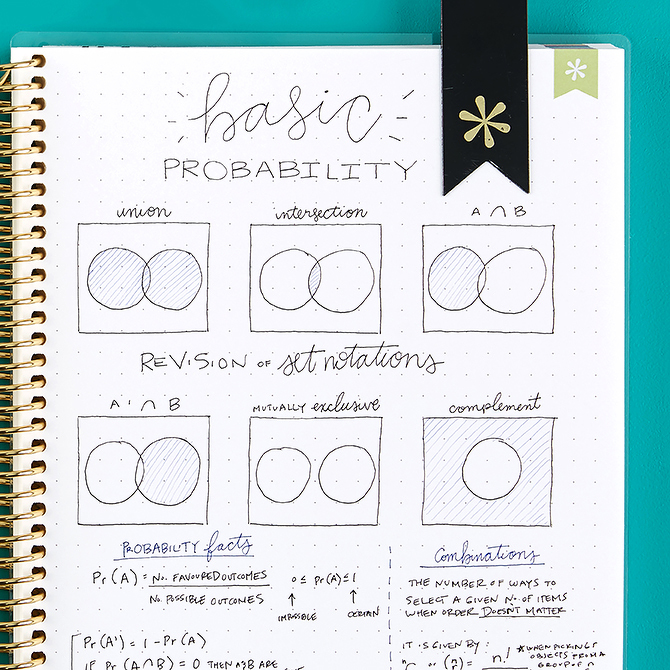 basic
PROBABILITY
union
intersection
A ∩ B
REVISION OF set notations
A' ∩ B
MUTUALLY exclusive
complement
PROBABILITY facts
Pr(A) = No. FAVOURED OUTCOMES
No. POSSIBLE OUTCOMES
0 ≤ Pr(A) ≤ 1
IMPOSSIBLE
CERTAIN
Pr(A') = 1 - Pr(A)
IF Pr(A∩B) = 0 THEN A&B ARE
Combinations
THE NUMBER OF WAYS TO
SELECT A GIVEN No. OF ITEMS
WHEN ORDER DOESN'T MATTER
IT IS GIVEN BY:
OR (n/r) = n!
*WHEN PICKING r
OBJECTS FROM A
GROUP OF n